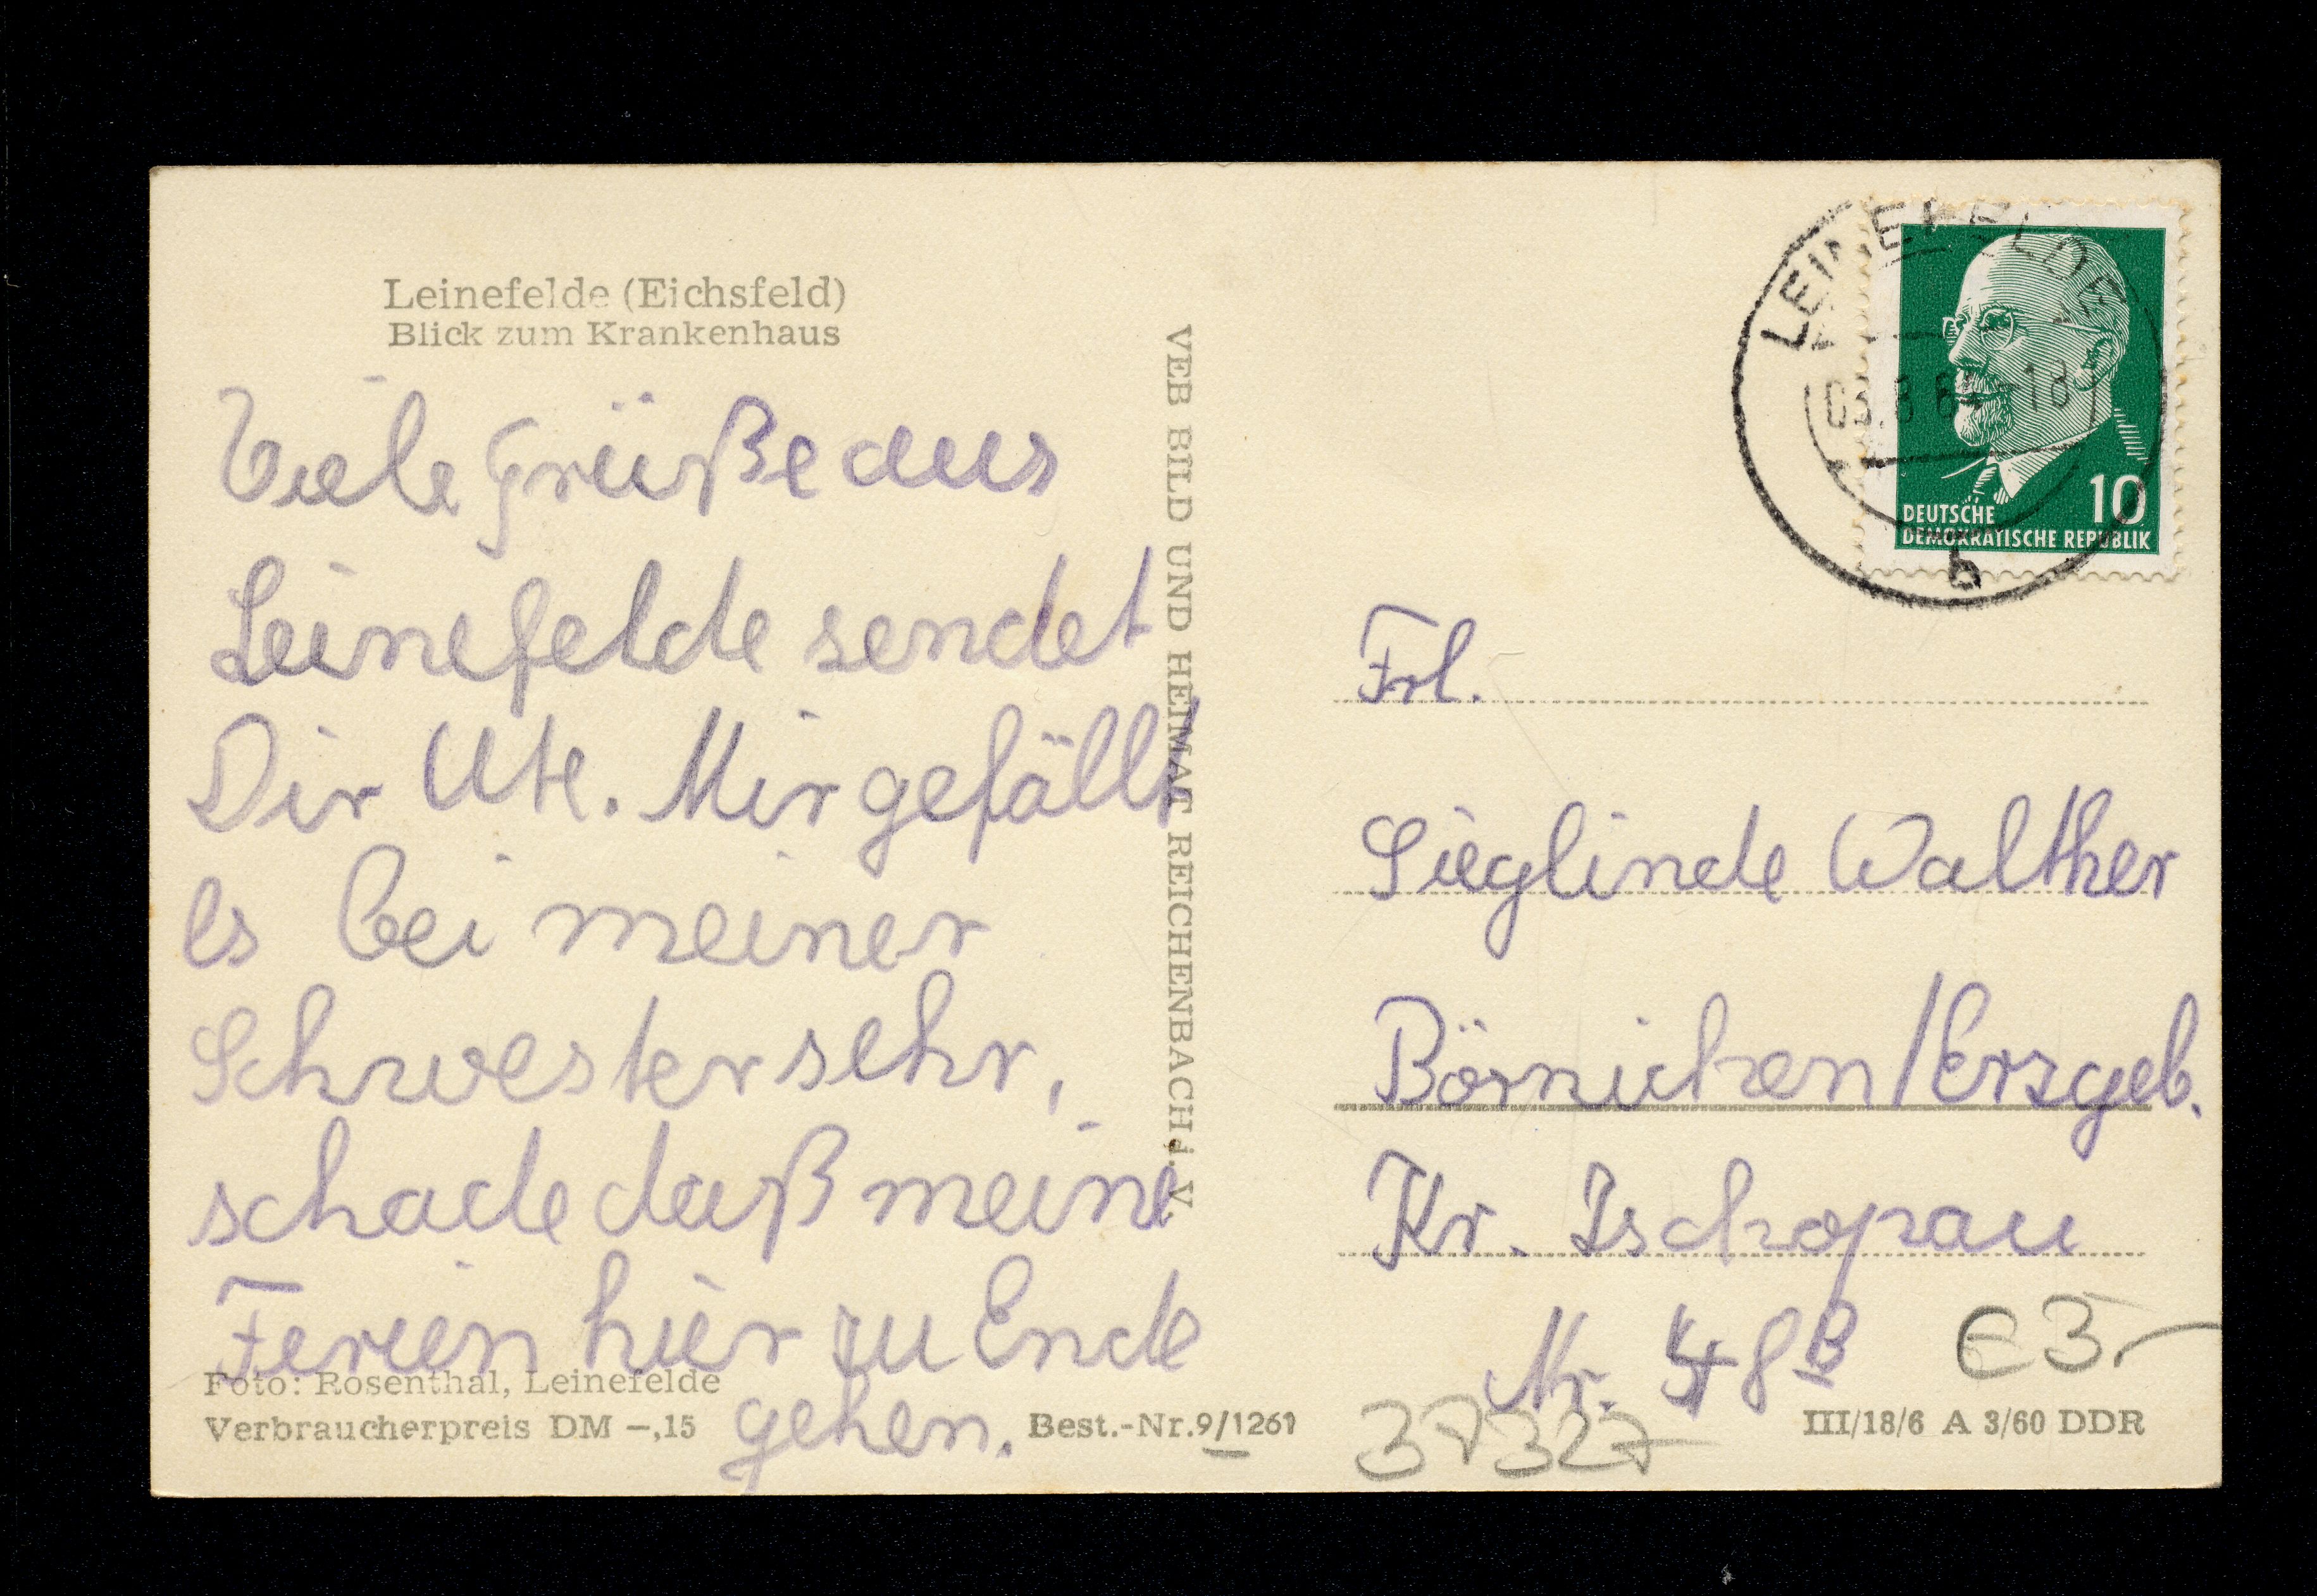 Leinefelde (Eichsfeld)
Blick zum Krankenhaus
Viele Grüße aus
Leinefelde sendet
Dir Ute. Mir gefällt
es bei meiner
Schwester sehr,
schade daß meine
Ferien hier zu Ende
gehen.
Foto: Rosenthal, Leinefelde
Verbraucherpreis DM –,15
Best.-Nr. 9/1261
VEB BILD UND HEIMAT REICHENBACH i. V.
LEINEFELDE
-18
b
10
DEUTSCHE
DEMOKRATISCHE REPUBLIK
Frl.
Sieglinde Walther
Börnichen/Erzgeb.
Kr. Zschopau
Nr. 48 B
€ 3,-
37327
III/18/6 A 3/60 DDR